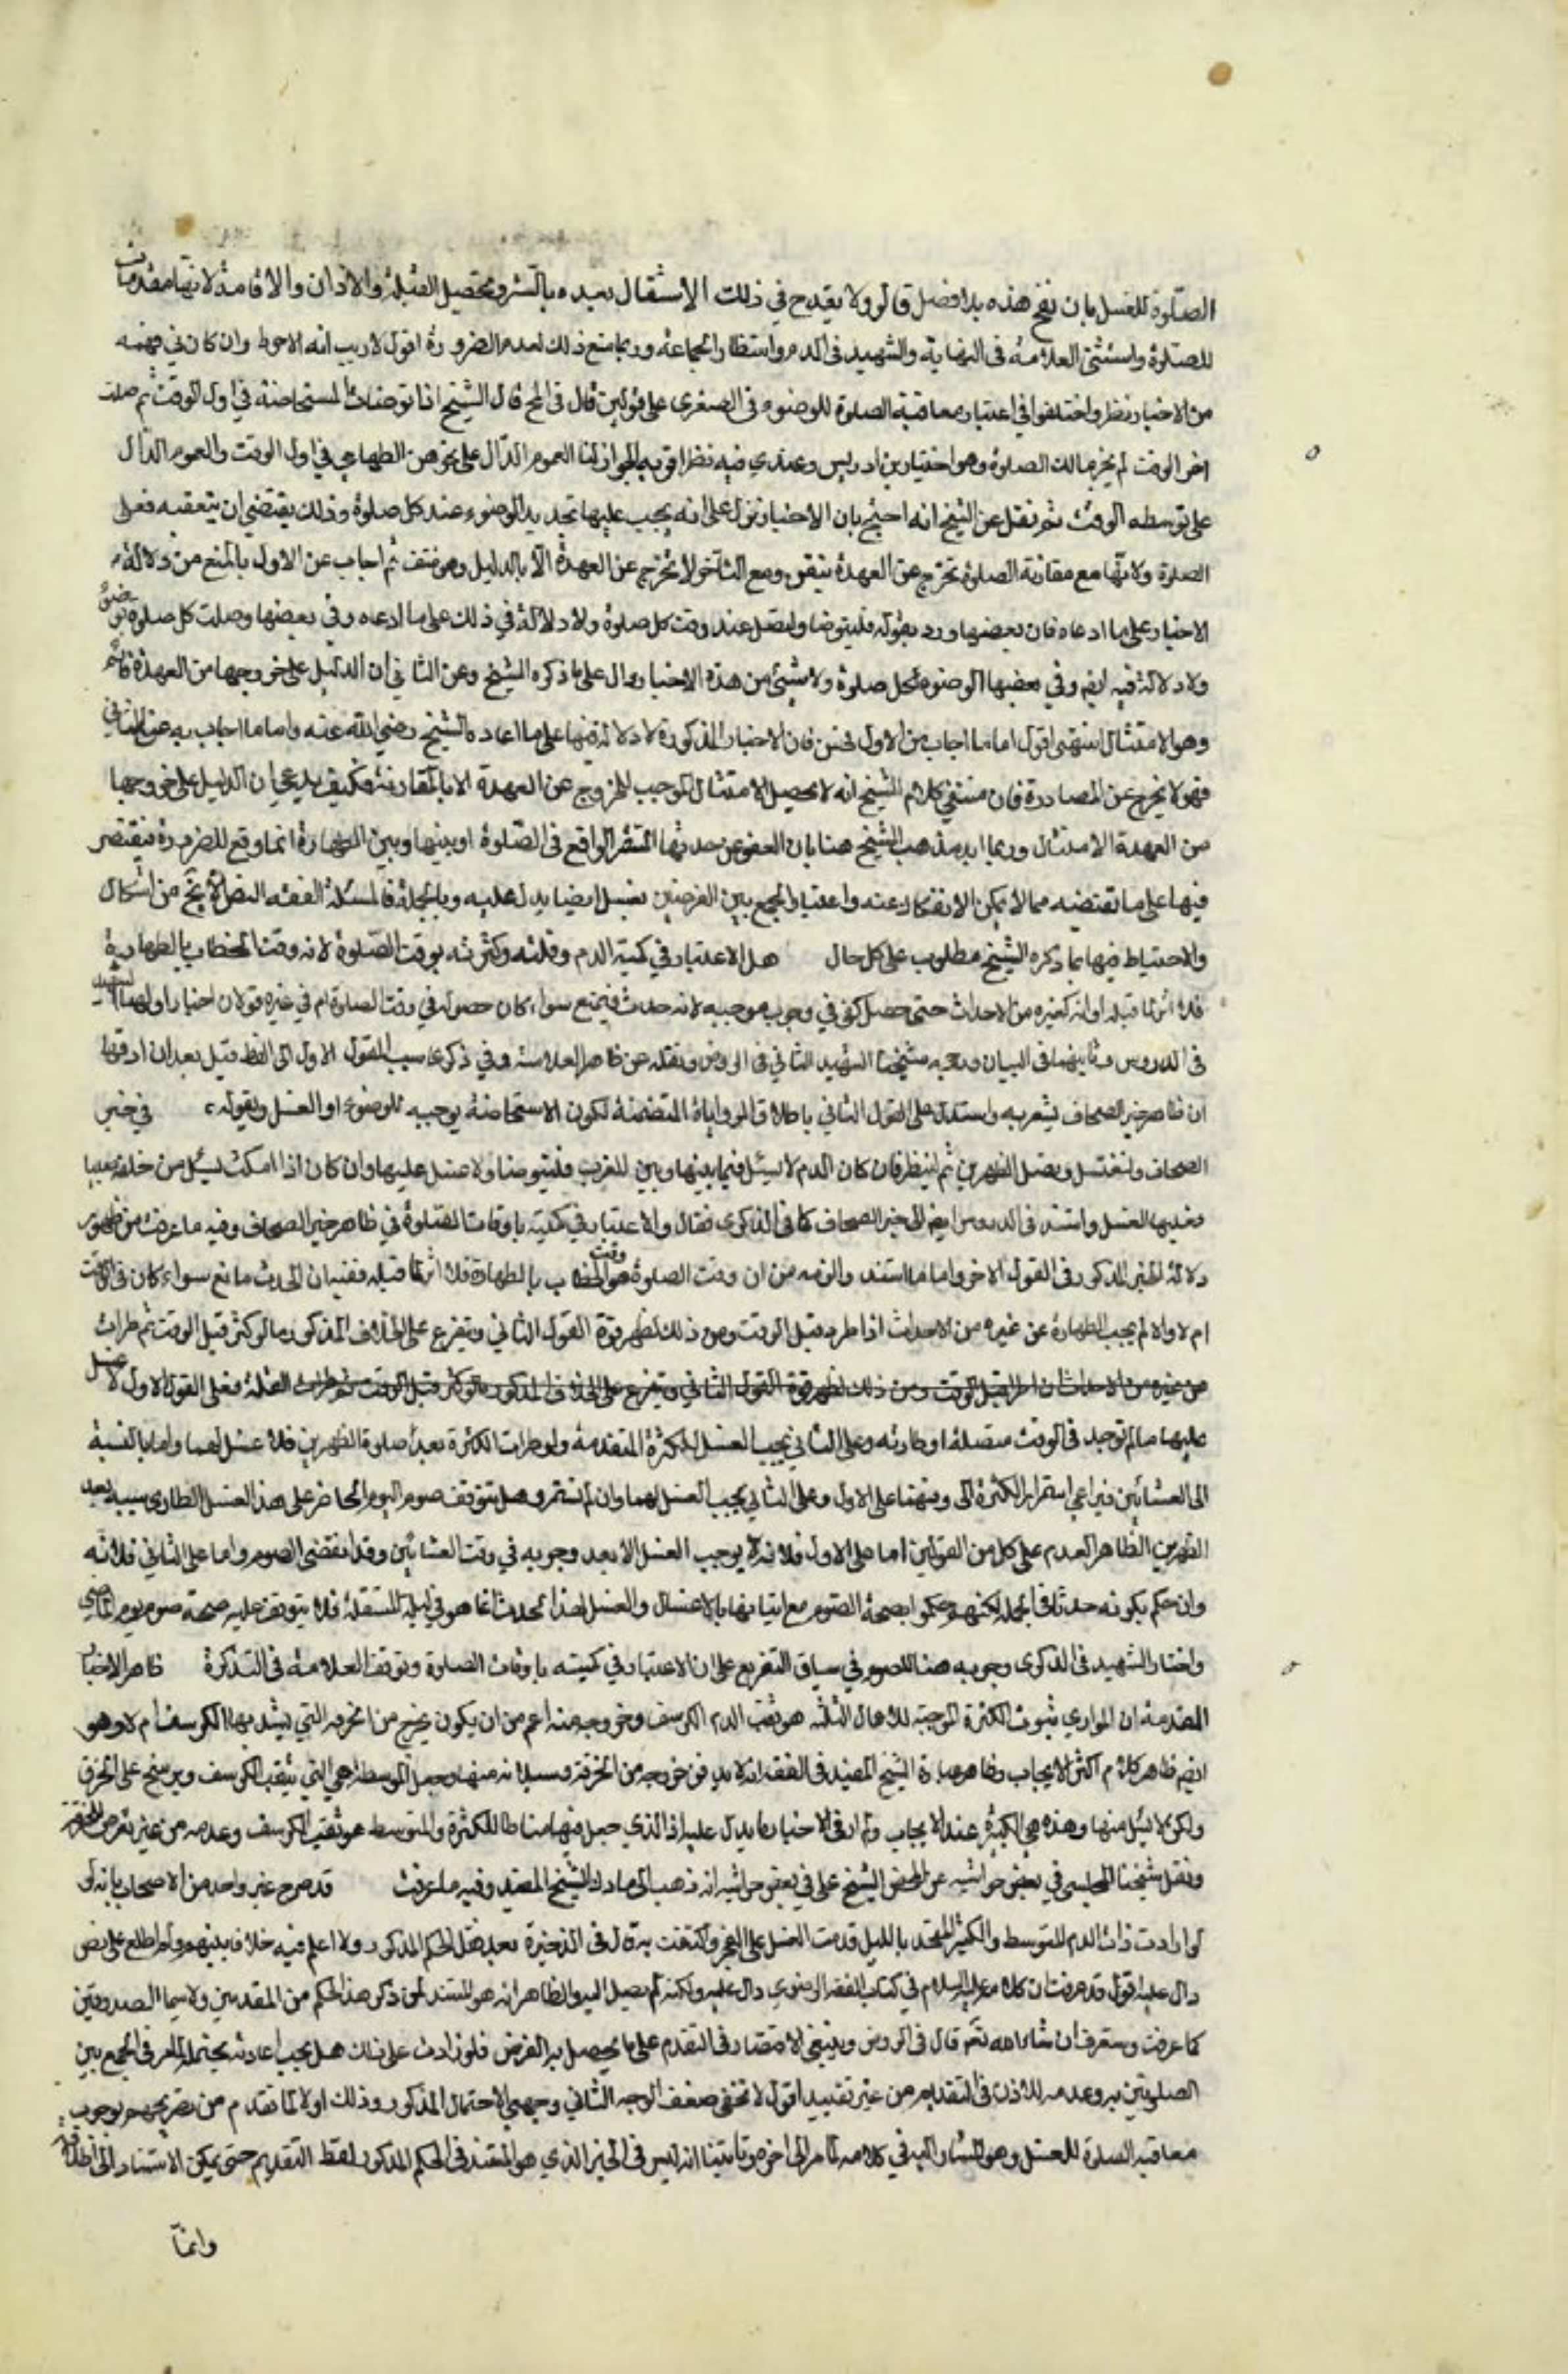 الصلوة للغسل بان نفخ هذه بدا فضل قالو ولا يقدح في ذلك الاشتغال بعده بالستر وتحصيل القبلة والاذان والاقامة لانها مقدمات
للصلوة واستثنى العلامة في النهاية والشهيد في الدروس انتظار الجماعة وربما منع ذلك لعدم الضرورة اقول لا ريب انه الاحوط وان كان في فهمه
من الاخبار نظر واختلفوا في اعتبار معاقبة الصلوة للوضوء في الصغرى على قولين قال في المخ قال الشيخ اذا توضأت المستحاضة في اول الوقت ثم صلت
اخر الوقت لم يجز تلك الصلوة وهو اختيار بن ادريس وعندي فيه نظر اقربه الجواز لنا العموم الدال على تجويز الطهارة في اول الوقت والعموم الدال
على توسطه الوقت ثم نقل عن الشيخ انه احتج بان الاخبار تدل على انه يجب عليها تجديد الوضوء عند كل صلوة وذلك يقتضي ان يتعقبه فعل
الصلوة ولانها مع مقارنة الصلوة تخرج عن العهدة بيقين ومع التأخر لا تخرج عن العهدة الا بالدليل وهو منتف ثم اجاب عن الاول بالمنع من دلالة
الاخبار على ما ادعاه فان بعضها ورد بقوله فليتوضا وليصل عند وقت كل صلوة ولا دلالة في ذلك على ما ادعاه وفي بعضها وصلت كل صلوة بوضوء
ولا دلالة فيه ايضم وفي بعضها الوضوء لكل صلوة ولا شيء من هذه الاخبار دال على ما ذكره الشيخ وعن الثاني ان الدليل على خروجها من العهدة قائم
وهو الامتثال انتهى اقول اما ما اجاب من الاول فحسن فان الاخبار المذكورة لا دلالة فيها على ما ادعاه الشيخ رضي الله عنه واما ما اجاب به عن الثاني
فهو لا يخرج عن المصادرة فان مقتضى كلام الشيخ انه لا يحصل الامتثال الموجب للخروج عن العهدة الا بالمقارنة فكيف يدعي ان الدليل على خروجها
من العهدة الامتثال وربما ايد مذهب الشيخ هنا بان العفو عن حدثها المستمر الواقع في الصلوة او بينها وبين الطهارة انما وقع للضرورة فيقتصر
فيها على ما تقتضيه مما لا يمكن الانفكاك عنه واعتبار الجمع بين الفرضين بغسل ايضا يدل عليه وبالجملة فالمسئلة لفقد النص لا تخ من اشكال
والاحتياط فيها بما ذكره الشيخ مطلوب على كل حال هل الاعتبار في كمية الدم وقلته وكثرته بوقت الصلوة لانه وقت الخطاب بالطهارة
فلا اثر لما قبله او انه كغيره من الاحداث حتى حصل كفى في وجوب موجبه لانه حدث فيمنع سواء كان حصوله في وقت الصلوة ام في غيره قولان اختار اولهما الشهيد
في الدروس وثانيهما في البيان ورجحه شيخنا الشهيد الثاني في الروض ونقله عن ظاهر العلامة وفي ذكرى نسب القول الاول الى لفظ قيل بعد ان ادعى
ان ظاهر خبر الصحاف يشعر به واستدل على القول الثاني باطلاق الروايات المتضمنة لكون الاستحاضة يوجبه للوضوء او الغسل وبقوله ع في خبر
الصحاف ولتغتسل وتصل الظهرين ثم لينظر فان كان الدم لا يسيل فيما بينها وبين المغرب فليتوضا ولا غسل عليها وان كان اذا امسكت يسيل من خلفه صبيبا
فعليها الغسل واستند في الدروس ايضم الى خبر الصحاف كما في الذكرى فقال والاعتبار في كميته باوقات الصلوة في ظاهر خبر الصحاف وفيه ما عرفت من ظهور
دلالة الخبر المذكور في القول الاخر واما ما استند والزمه من ان وقت الصلوة هو وقت الخطاب بالطهارة فلا اثر لما قبله ففيه ان الحدث مانع سواء كان في الوقت
ام لا والا لم يجب الطهارة عن غيره من الاحداث اذا طرء قبل الوقت ومن ذلك تظهر قوة القول الثاني ويتفرع على الخلاف المذكور ما لو كثر قبل الوقت ثم طرات
عن غيره من الاحداث اذا طرء قبل الوقت ومن ذلك تظهر قوة القول الثاني ويتفرع على الخلاف المذكور ما لو كثر قبل الوقت ثم طرات القلة فعلى القول الاول لا غسل
عليها ما لم توجد في الوقت متصلة او طارئه وعلى الثاني يجب الغسل للكثرة المتقدمة ولو طرات الكثرة بعد صلوة الظهرين فلا غسل لهما واما بالنسبة
الى العشائين فيراعي استمرار الكثرة الى وقتهما على الاول وعلى الثاني يجب الغسل لهما وان لم تستمر وهل يتوقف صوم اليوم الحاضر على هذا الغسل الطاري سببه بعد
الظهرين الظاهر العدم على كل من القولين اما على الاول فلانه لا يوجب الغسل الا بعد وجوبه في وقت العشائين وقد انقضى الصوم واما على الثاني فلانه
وان حكم بكونه حدثا في الجملة لكنهم حكموا بصحة الصوم مع اتيانها بالاغسال والغسل لهذا الحدث انما هو في ليلة المستقبلة فلا يتوقف عليه صحة صوم يوم الماضي
واختار الشهيد في الذكرى وجوبه هنا للصوم في سياق التفريع على ان الاعتبار في كميته باوقات الصلوة وتوقف العلامة في التذكرة ظاهر الاخبار
المتقدمة ان المدار في ثبوت الكثرة الموجبة للاغسال الثلثة هو ثقب الدم الكرسف وخروجه منه اعم من ان يكون يخرج من الخرقة التي يشد بها الكرسف ام لا وهو
ايضم ظاهر كلام اكثر الاصحاب وظاهر عبارة الشيخ المفيد في المقنعة انه لا بد من خروجه من الخرقة وسيلانه منها وجعل المتوسطة هي التي يثقب الكرسف ويرشح على الخرق
ولكن لا يسيل منها وهذه هي الكثيرة عند الاصحاب ولم ار في الاخبار ما يدل عليه اذ الذي جعل فيها مناطا للكثرة والمتوسطة هو ثقب الكرسف وعدمه من غير تعرض للخرقة
ونقل شيخنا المجلسي في بعض حواشيه عن المحقق الشيخ علي في بعض حواشيه انه ذهب الى ما ذكره الشيخ المفيد وفيه ما عرفت قد صرح غير واحد من الاصحاب بانه لو
لو ارادت ذات الدم المتوسط والكثير التهجد بالليل قدمت الغسل على الفجر واكتفت به قال في الذخيرة بعد نقل الحكم المذكور ولا اعلم فيه خلافا بينهم ولم اطلع على نص
دال عليه اقول قد عرفت ان كلامه عليه السلام في كتاب الفقه الرضوي دال عليه ولكنه لم يصل اليه والظاهر انه هو المستند لمن ذكر هذا الحكم من المتقدمين ولا سيما الصدوقين
كما عرفت وستعرف ان شاء الله تعم قال في الروض وينبغي الاقتصار في التقدم على ما يحصل به الغرض فلو زادت على ذلك هل يجب اعادته يحتمله لما مر في الجمع بين
الصلوتين به وعدمه للاذن في التقديم من غير تقييد اقول لا تخفى ضعف الوجه الثاني وجهي الاحتمال المذكور وذلك اولا لما تقدم من تصريحهم بوجوب
معاقبة الصلوة للغسل وهو المشار اليه في كلامه لما مر الى اخره وثانيا انه ليس في الخبر الذي هو المستند في الحكم المذكور لفظ التقديم حتى يمكن الاستناد الى اطلاقه
وانما